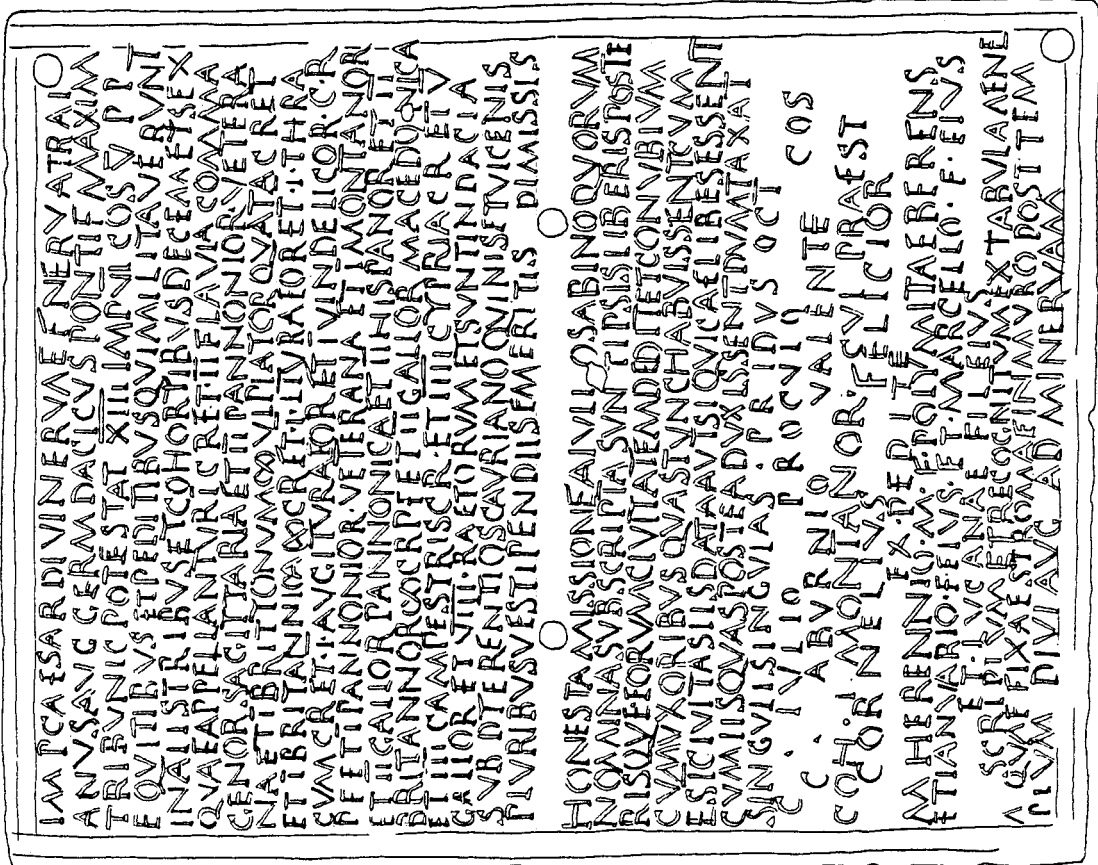 IMP CAESAR DIVI NERVAE F NERVA TRAI
ANVS AVG GERM DACICVS PONTIF MAXIM
TRIBVNIC POTESTAT XIIII IMP VII COS V P P
EQVITIBVS ET PEDITIBVS QVI MILITAVERVNT
IN ALIS TRIBVS ET COHORTIBVS DECEM ET SEX
QVAE APPELLANTVR I C R ET III FLAVIA COMMA
GENOR SAGITTARIA ET II PANNONIOR VETERA
NA ET I BRITTONVM ∞ VLPIA TORQVATA C R ET I
ET I BRITANNICA ∞ C R ET I ITVRAEOR ET I THRA
CVM C R ET I AVG ITVRAEOR ET I VINDELICOR C R
P F ET I PANNONIOR VETERANA ET I MONTANOR
ET II GALLOR PANNONICA ET II HISPANOR ET II
BRITANNOR ∞ C R P F ET II GALLOR MACEDONICA
ET III CAMPESTRIS C R ET IIII CYPRIA C R ET IV
GALLOR ET VIII RAETORVM ET SVNT IN DACIA
SVB D TERENTIO SCAVRIANO QVINIS ET VICENIS
PLVRIBVSVE STIPENDIIS EMERITIS DIMISSIS
HONESTA MISSIONE A IVLIO SABINO QVORVM
NOMINA SVBSCRIPTA SVNT IPSIS LIBERIS POSTE
RISQVE EORVM CIVITATEM DEDIT ET CONVBIVM
CVM VXORIBVS QVAS TVNC HABVISSENT CVM
EST CIVITAS IIS DATA AVT SI QVI CAELIBES ESSENT
CVM IIS QVAS POSTEA DVXISSENT DVMTAXAT
SINGVLI SINGVLAS PR IDVS OCT
C IVLIO PROCVLO COS
C ABVRNIO VALENTE
COH I MONTANOR CVI PRAEST
CORNELIVS FELICIOR
EX PEDITE
M HERENNIO M F POLYMITAE BERENS
ET IANVARIO F EIVS ET MARCELLO F EIVS
ET LVCANAE FIL EIVS
DESCRIPTVM ET RECOGNITVM EX TABVLA AENE
A QVAE FIXA EST ROMAE IN MVRO POST TEM
PLVM DIVI AVG AD MINERVAM